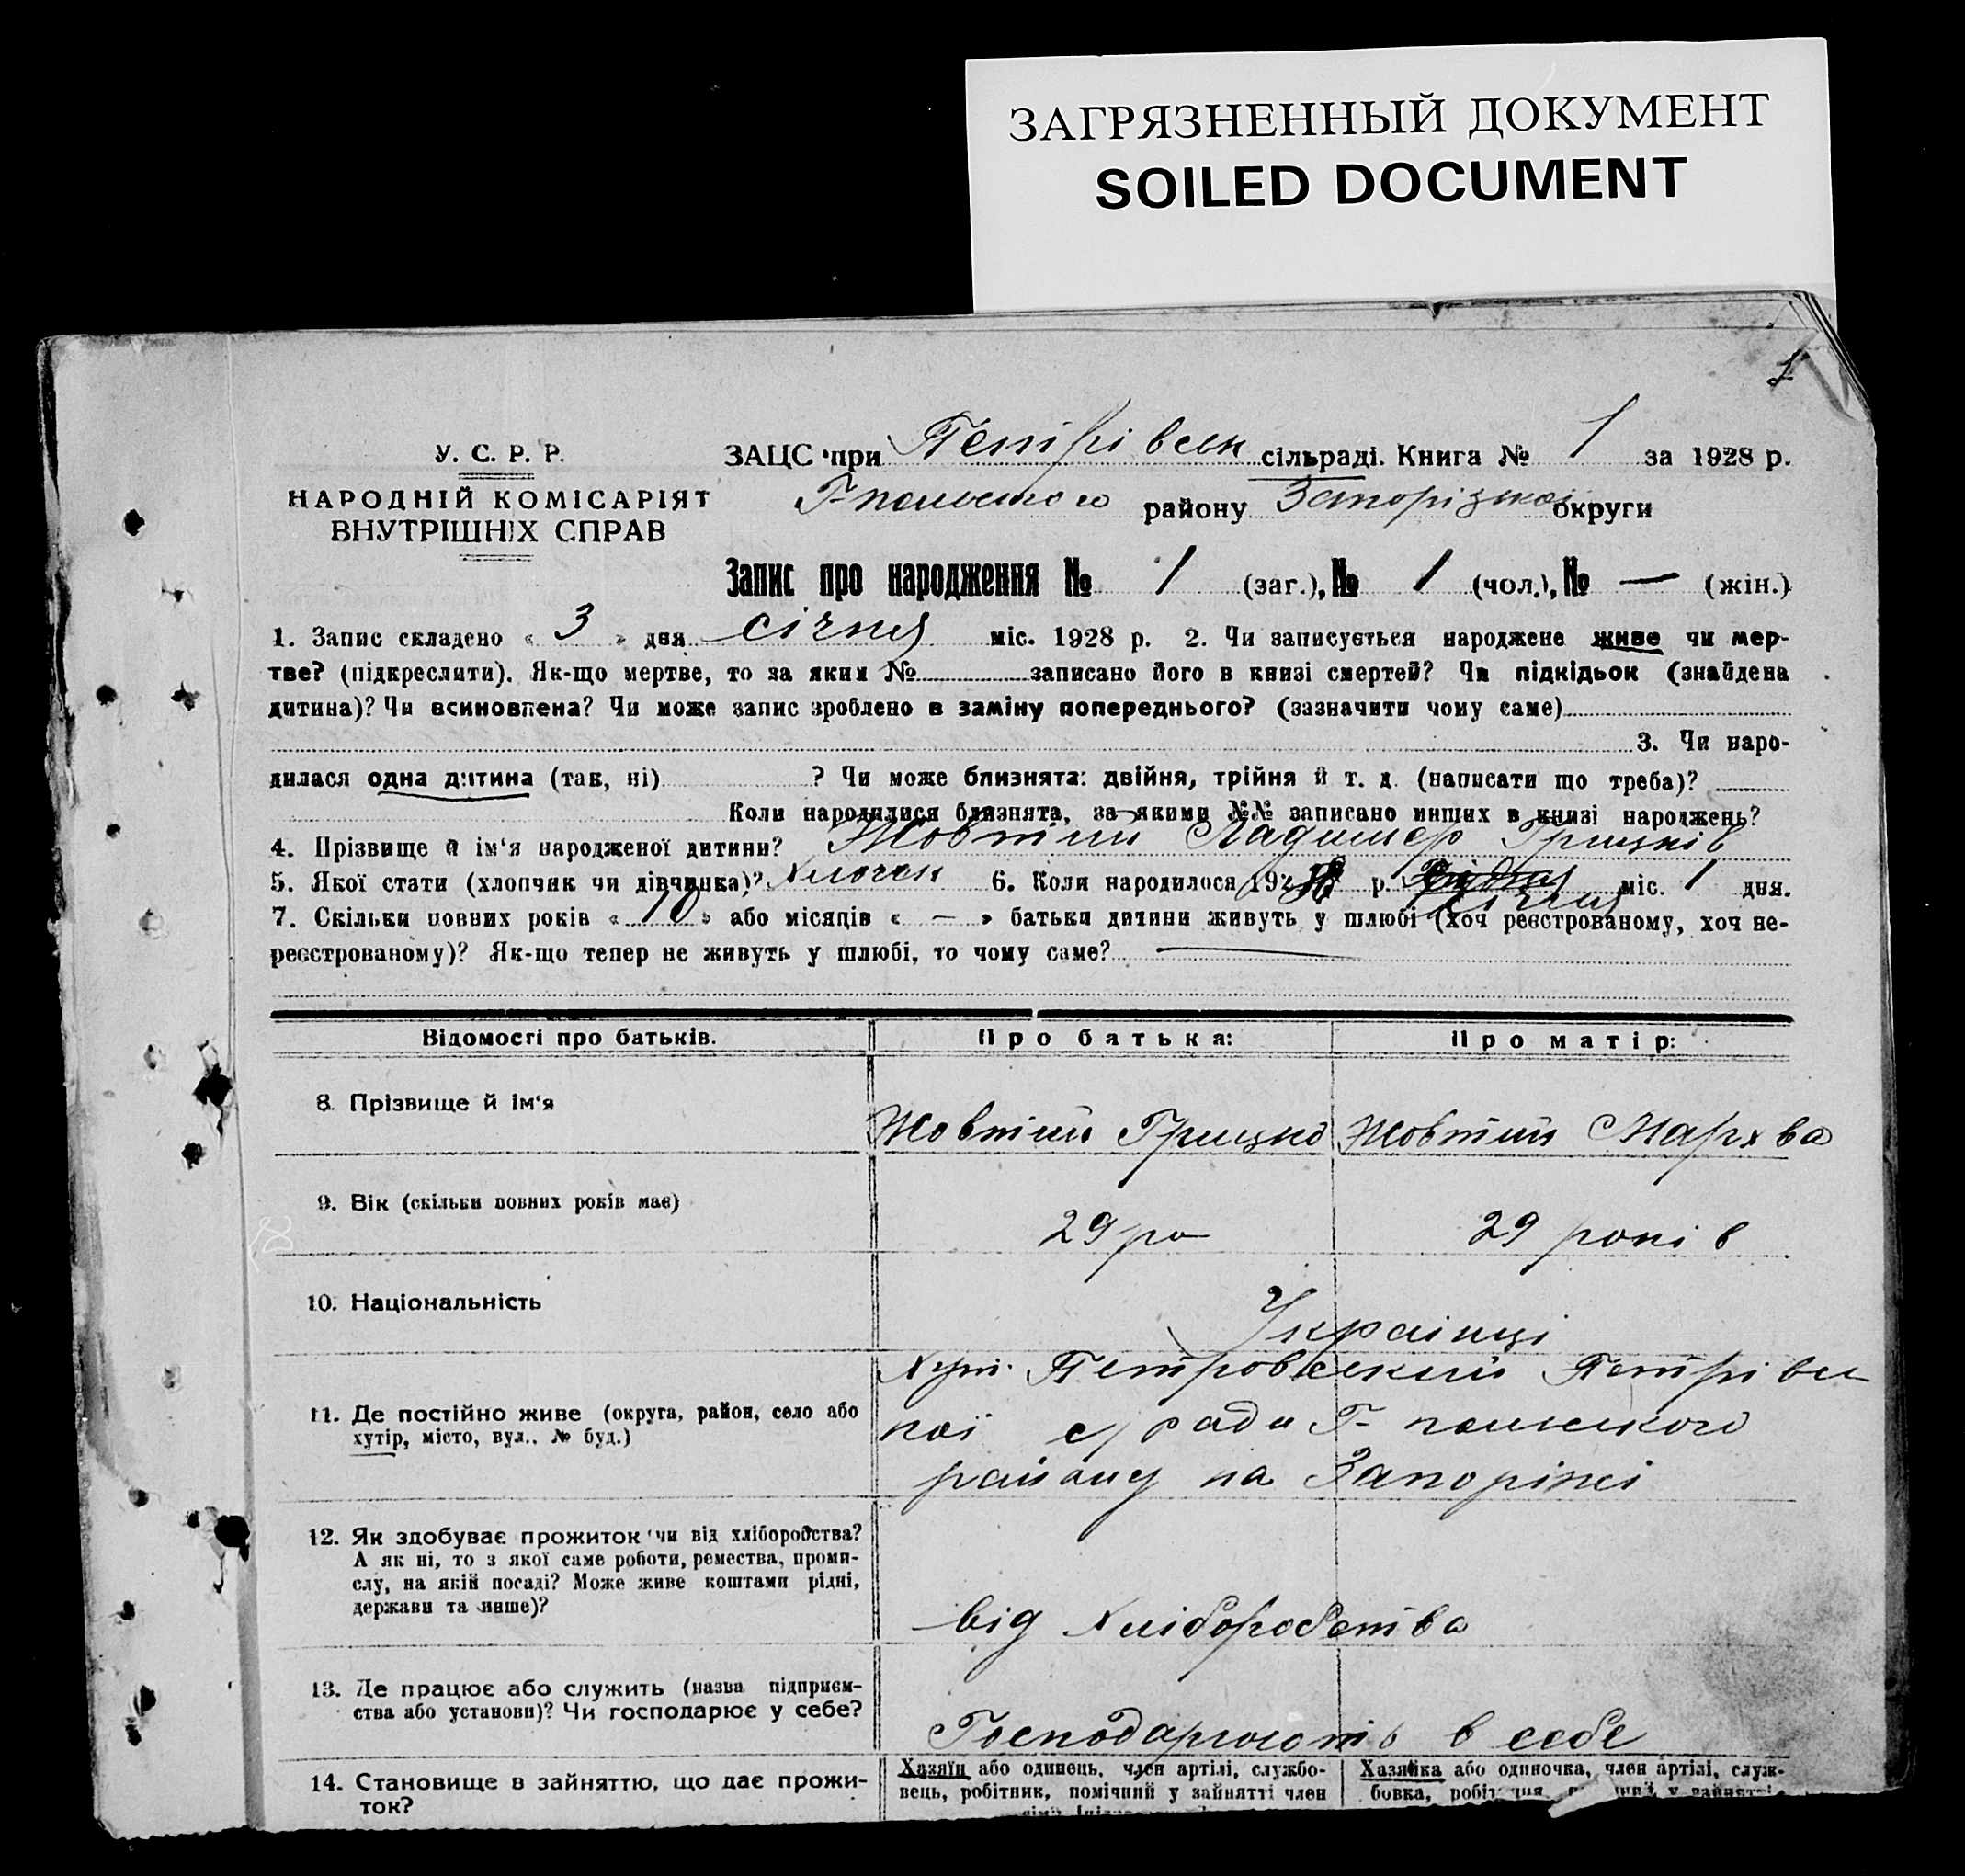 ЗАГРЯЗНЕННЫЙ ДОКУМЕНТ
SOILED DOCUMENT
1
У. С. Р. Р.
НАРОДНІЙ КОМІСАРІЯТ
ВНУТРІШНІХ СПРАВ
ЗАЦС при Петрівськ сільраді. Книга № 1 за 1928 р.
Г-польського району Запорізької округи
Запис про народження № 1 (заг.), № 1 (чол.), № — (жін.)
1. Запис складено « 3 » дня січня міс. 1928 р. 2. Чи записується народжене живе чи мер-
тве? (підкреслити). Як-що мертве, то за яким № записано його в книзі смертей? Чи підкідьок (знайдена
дитина)? Чи всиновлена? Чи може запис зроблено в заміну попереднього? (зазначити чому саме)
3. Чи наро-
дилася одна дитина (так, ні) ? Чи може близнята: двійня, трійня й т. д. (написати що треба)?
Коли народилися близнята, за якими №№ записано инших в книзі народжень?
4. Прізвище й ім'я народженої дитини? Жовтий Ладимер Грицків
5. Якої стати (хлопчик чи дівчинка)? Хлочек 6. Коли народилося 192 р. січня міс. 1 дня.
7. Скільки повних років « 10 » або місяців « — » батьки дитини живуть у шлюбі (хоч реєстрованому, хоч не-
реєстрованому)? Як-що тепер не живуть у шлюбі, то чому саме? —
Відомості про батьків. Про батька: Про матір:
8. Прізвище й ім'я Жовтий Грицко Жовтий Мархва
9. Вік (скільки повних років має) 29 ро 29 років
10. Національність Українці
11. Де постійно живе (округа, район, село або
хутір, місто, вул., № буд.)
Хут. Петровський Петрівсь
кої с/ради Г-польського
району на Запоріжі
12. Як здобуває прожиток чи від хліборобства?
А як ні, то з якої саме роботи, ремества, проми-
слу, на якій посаді? Може живе коштами рідні,
держави та инше)?
від хліборобства
13. Де працює або служить (назва підприєм-
ства або установи)? Чи господарює у себе?
Господарюють в себе
14. Становище в зайняттю, що дає прожи-
ток?
Хазяїн або одинець, член артілі, службо-
вець, робітник, помічний у зайнятті член
Хазяйка або одиночка, член артілі, служ-
бовка, у зайнятті